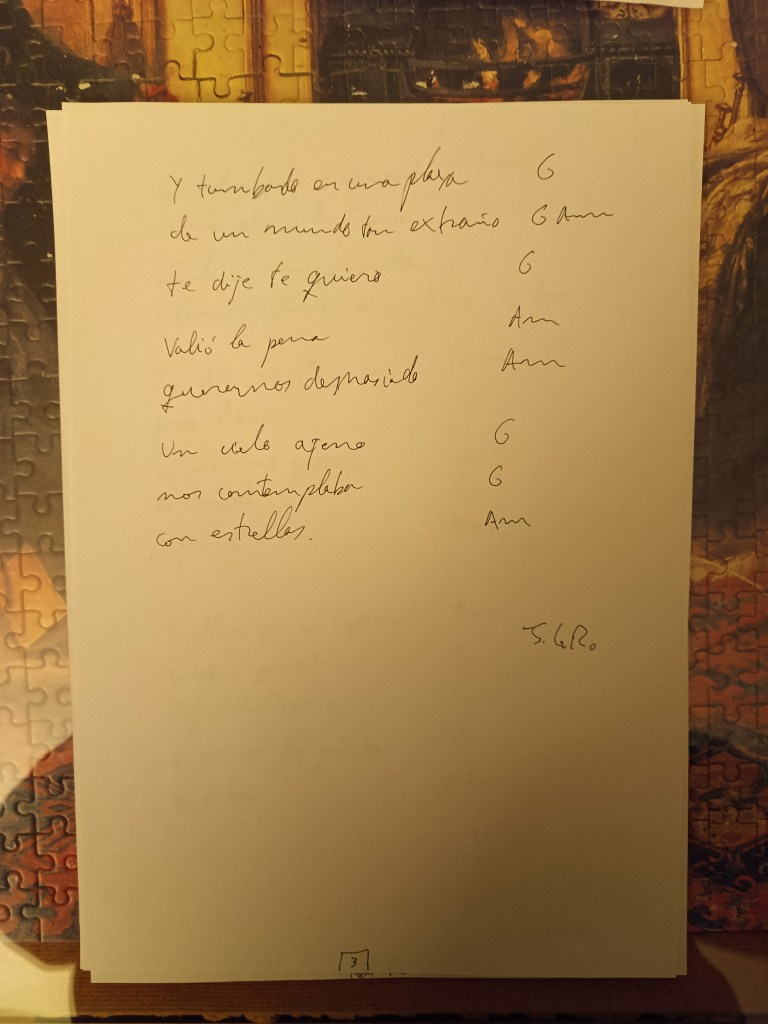 Y tumbado en una playa G
de un mundo tan extraño G Am
te dije te quiero G
Valió la pena Am
querernos demasiado Am
Un cielo ajeno G
nos contemplaba G
con estrellas. Am
3